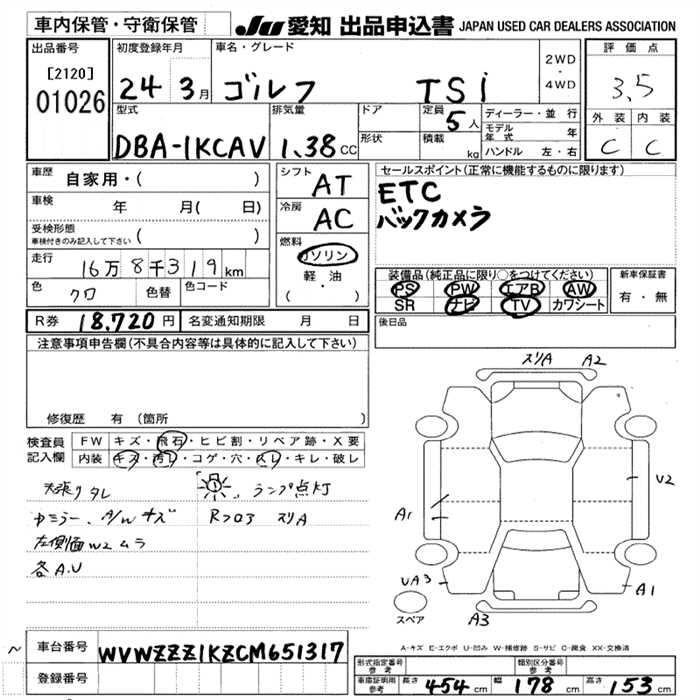 車内保管・守衛保管
JU 愛知 出品申込書 JAPAN USED CAR DEALERS ASSOCIATION
出品番号 初度登録年月 車名・グレード 2WD・4WD 評価点
[2120]
01026 24 3月 ゴルフ TSi 3.5
型式 排気量 ドア 定員 5人 ディーラー・並行 外装 内装
DBA-1KCAV 1.38CC 形状 積載 kg モデル年式 年 C C
ハンドル 左・右
車歴 自家用・( ) シフト AT セールスポイント(正常に機能するものに限ります)
車検 年 月( 日) 冷房 AC ETC
受検形態 ( ) バックカメラ
車検付きのみ記入して下さい
燃料 ガソリン
走行 16万8千319km 軽・油
(・ )
装備品(純正品に限り○をつけてください) 新車保証書
色 クロ 色替 色コード PS PW エアB AW 有・無
SR ナビ TV カワシート
R券 18,720円 名変通知期限 月 日 後日品
注意事項申告欄(不具合内容等は具体的に記入して下さい)
修復歴 有 (箇所 )
スリA A2
検査員 FW キズ・飛石・ヒビ割・リペア跡・X要
記入欄 内装 キズ・汚レ・コゲ・穴・スレ・キレ・破レ
天張りタレ ランプ点灯
ドミラー、A/Wキズ Rフロア スリA
左側面W2ムラ
各A.U
U2
A1
UA3 A1
スペア A3
A-キズ E-エクボ U-凹み W-補修跡 S-サビ C-腐食 XX-交換済
車台番号 WVWZZZ1KZCM651317
登録番号
形式指定番号 参考 類別区分番号 参考
車庫証明用 参考 長さ 454cm 幅 178cm 高さ 153cm